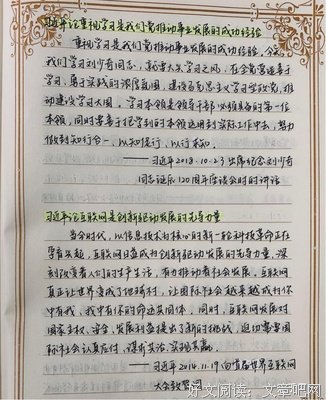 习近平论重视学习是我们党推动事业发展的成功经验
重视学习是我们党推动事业发展的成功经验。今天
我们学习刘少奇同志,就要大兴学习之风,在全党营造善于
学习、勇于实践的浓厚氛围,建设马克思主义学习型政党,
推动建设学习大国。学习本领是领导干部必须具备的第一位
本领,同时要善于把学到的本领运用到实际工作中去,努力
做到知行合一、以知促行、以行求知。
——习近平2018.10.23出席纪念刘少奇
同志诞辰120周年座谈会时的讲话
习近平论互联网是创新驱动发展的先导力量
当今时代,以信息技术为核心的新一轮科技革命正在
孕育兴起,互联网日益成为创新驱动发展的先导力量,深
刻改变着人们的生产生活,有力推动着社会发展。互联网
真正让世界变成了地球村,让国际社会越来越成为你
中有我、我中有你的命运共同体。同时,互联网发展对
国家主权、安全、发展利益提出了新的挑战,迫切需要国
际社会认真应对、谋求共治、实现共赢。
——习近平2014.11.19向首届世界互联网
大会致贺词
好文阅读:文章吧网